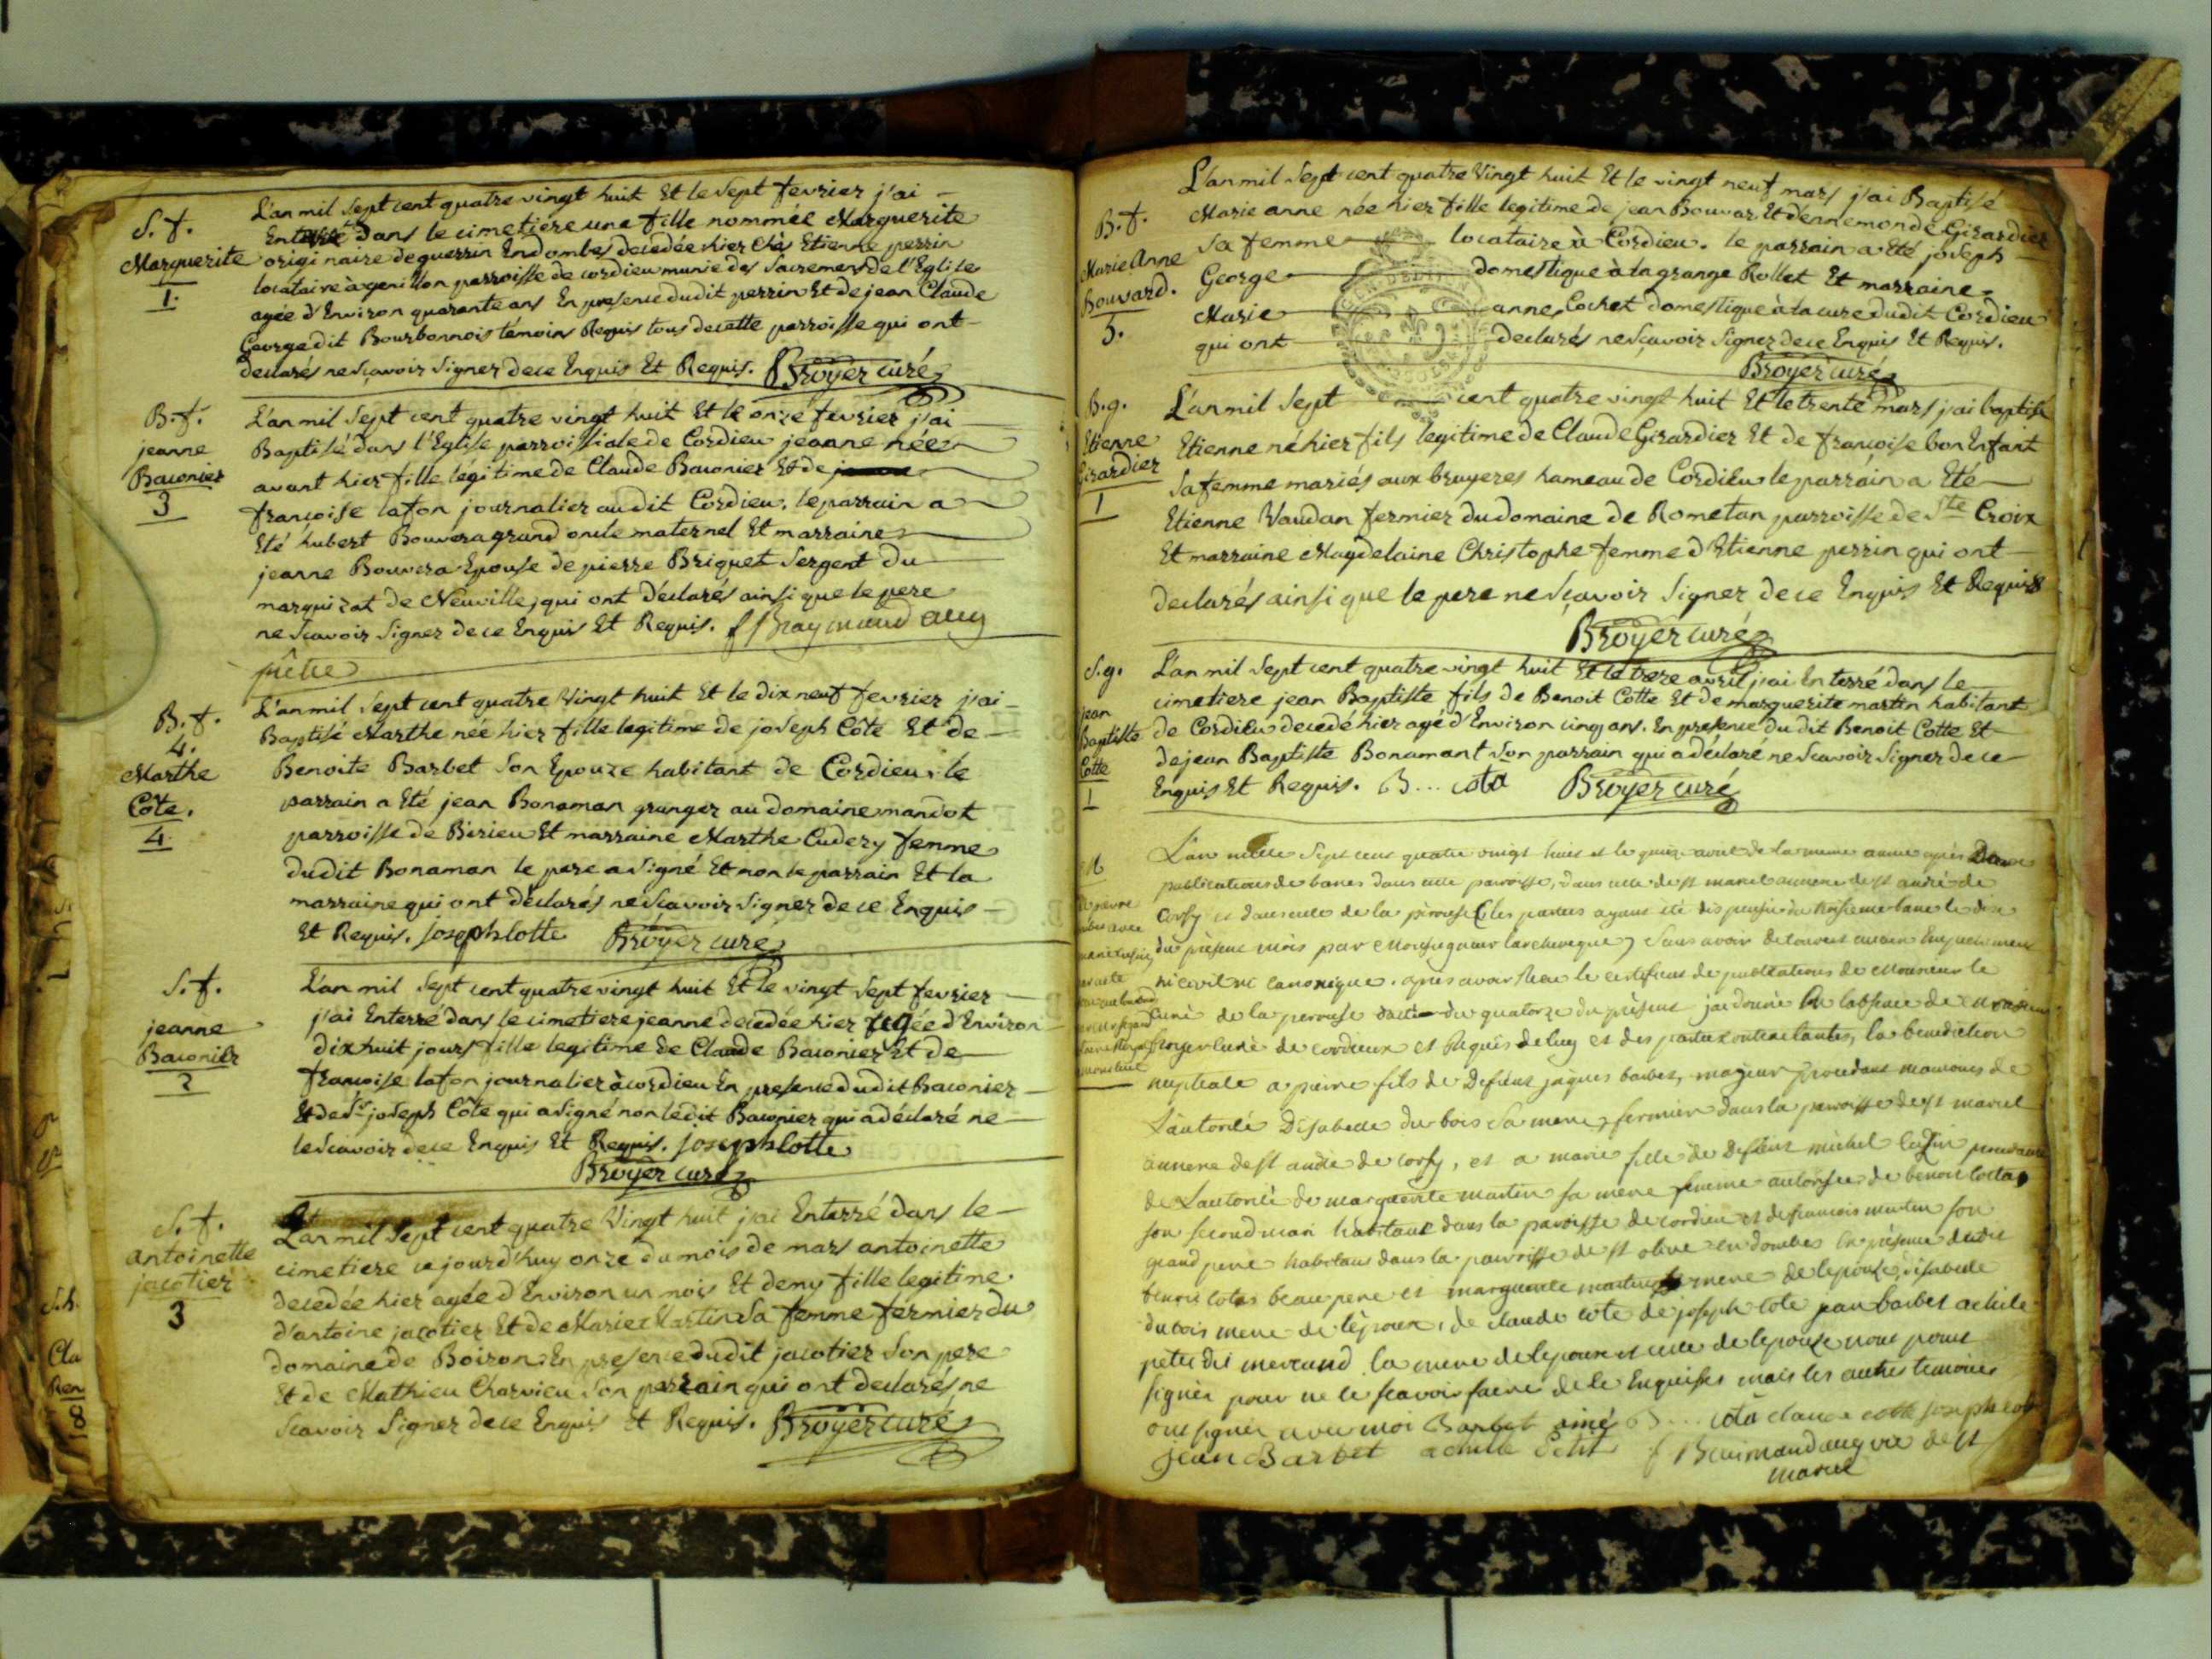 S. f.
Marguerite
1.
L'an mil sept cent quatre vingt huit Et le sept fevrier j'ai
Enterré dans le cimetiere une fille nommée Marguerite
originaire de guerrin En dombes decedée hier chès Etienne perrin
locataire à genillon parroisse de cordieu munie des sacremens de l'Eglise
agée d'Environ quarante ans En presence dudit perrin Et de jean Claude
George dit Bourbonnois témoins Requis tous de cette parroisse qui ont
declarés ne sçavoir signer de ce Enquis Et Requis. Broyer curé
B. f.
jeanne
Baconier
3
L'an mil sept cent quatre vingt huit Et le onze fevrier j'ai
Baptisé dans l'Eglise parroissiale de Cordieu jeanne née
avant hier fille legitime de Claude Baconier Et de
françoise lafon journalier audit Cordieu. le parrain a
Eté hubert Bouvera grand oncle maternel Et marraine
jeanne Bouvera Epouse de pierre Briquet Sergent du
marquizat de Neuville, qui ont déclarés ainsi que le pere
ne scavoir signer de ce Enquis Et Requis. f Raymand aug
pêtre
B. f.
4.
Marthe
Côte.
4.
L'an mil sept cent quatre Vingt huit Et le dix neuf fevrier j'ai
Baptisé Marthe née hier fille legitime de joseph Côte Et de
Benoite Barbet son Epouze habitant de Cordieu. le
parrain a Eté jean Bonaman granger au domaine mandot
parroisse de Birieu Et marraine Marthe Cudery femme
dudit Bonaman le pere a signé Et non le parrain Et la
marraine qui ont déclarés ne scavoir signer de ce Enquis
Et Requis. joseph cotte Broyer curé
S. f.
jeanne
Baconier
2
L'an mil sept cent quatre vingt huit Et le vingt sept fevrier
j'ai Enterré dans le cimetiere jeanne decedée hier agée d'Environ
dix huit jours fille legitime de Claude Baconier Et de
françoise lafon journalier à cordieu En presence dudit Baconier
Et de Sr joseph Côte qui a signé non ledit Baconier qui a déclaré ne
le scavoir de ce Enquis Et Requis. joseph cotte
Broyer curé
S. f.
antoinette
jacotier
3
L'an mil sept cent quatre Vingt huit j'ai Enterré dans le
cimetiere ce jourd'huy onze du mois de mars antoinette
decedée hier agée d'Environ un mois Et demy fille legitime
d'antoine jacotier Et de Marie Martin sa femme fermier du
domaine de Boiron. En presence dudit jacotier son pere
Et de Mathieu Charvieu son parrain qui ont declarés ne
scavoir signer de ce Enquis Et Requis. Broyer curé
B. f.
Marie Anne
Bouvard.
5.
L'an mil sept cent quatre Vingt huit Et le vingt neuf mars j'ai Baptisé
Marie anne née hier fille legitime de jean Bouvar Et d'ennemonde Girardier
sa femme locataire à Cordieu. le parrain a Eté joseph
George domestique à la grange Rollet Et marraine
Marie anne Cochet domestique à la cure dudit Cordieu
qui ont declarés ne sçavoir signer de ce Enquis Et Requis.
Broyer curé
B. g.
Etienne
Girardier
1
L'an mil sept cent quatre vingt huit Et le trente mars j'ai baptisé
Etienne né hier fils legitime de Claude Girardier Et de françoise bon Enfant
sa femme mariés aux bruyeres hameau de Cordieu le parrain a Eté
Etienne Vaudan fermier du domaine de Rometan parroisse de Ste Croix
Et marraine Magdelaine Christophe femme d'Etienne perrin qui ont
declarés ainsi que le pere ne sçavoir signer de ce Enquis Et Requis
Broyer curé
S. g.
jean
Baptiste
Cotte
1
L'an mil sept cent quatre vingt huit Et le treze avril j'ai Enterré dans le
cimetiere jean Baptiste fils de Benoit Cotte Et de marguerite martin habitant
de Cordieu decedé hier agé d'Environ cinq ans. En presence du dit Benoit Cotte Et
de jean Baptiste Bonamant son parrain qui a déclaré ne scavoir signer de ce
Enquis Et Requis. B... cota Broyer curé
L'an mille sept cent quatre vingt huit et le quinze avril de la meme année après deux
publications de bancs dans cette parroisse, dans celle de st marcel annexe de st andré de
Corsy et dans celle de la pérouse les parties ayant été dispensées du troisieme banc le dix
du présent mois par Monseigneur l'archeveque, sans avoir decouvert aucun Empechement
ni civil ni canonique. après avoir veu le certificat de publications de Monsieur le
curé de la perouse du quatorze du présent j'ai donné En l'absence de
Broyer curé de cordieux et Requis de luy et des parties contractantes, la benediction
nuptiale a pierre fils de Defunt jaques barbet, majeur procedant
L'autorité D'isabelle du bois sa mere, fermier dans la parroisse de st marcel
annexe de st andré de corsy, et a marie fille de Defunt michel
de L'autorité de marguerite martin sa mere femme autorisée de benoit cotta
son second mari habitant dans la paroisse de cordieu et de francois martin son
grand pere habitant dans la parroisse de st olive en dombes En présence dudit
benoit cota beau pere et marguerite martin mere de l'epouse, d'isabelle
du bois mere de l'epoux, de claude cote de joseph cote jean barbet achile
petit la mere de l'epoux et celle de l'epouse n'ont point
signés pour ne le scavoir faire de ce Enquises mais les autres temoins
ont signés avec moi Barbet ainé B... cota claude cotte joseph cotte
jean Barbet achile Petit f Raimand aug vic de st
marcel